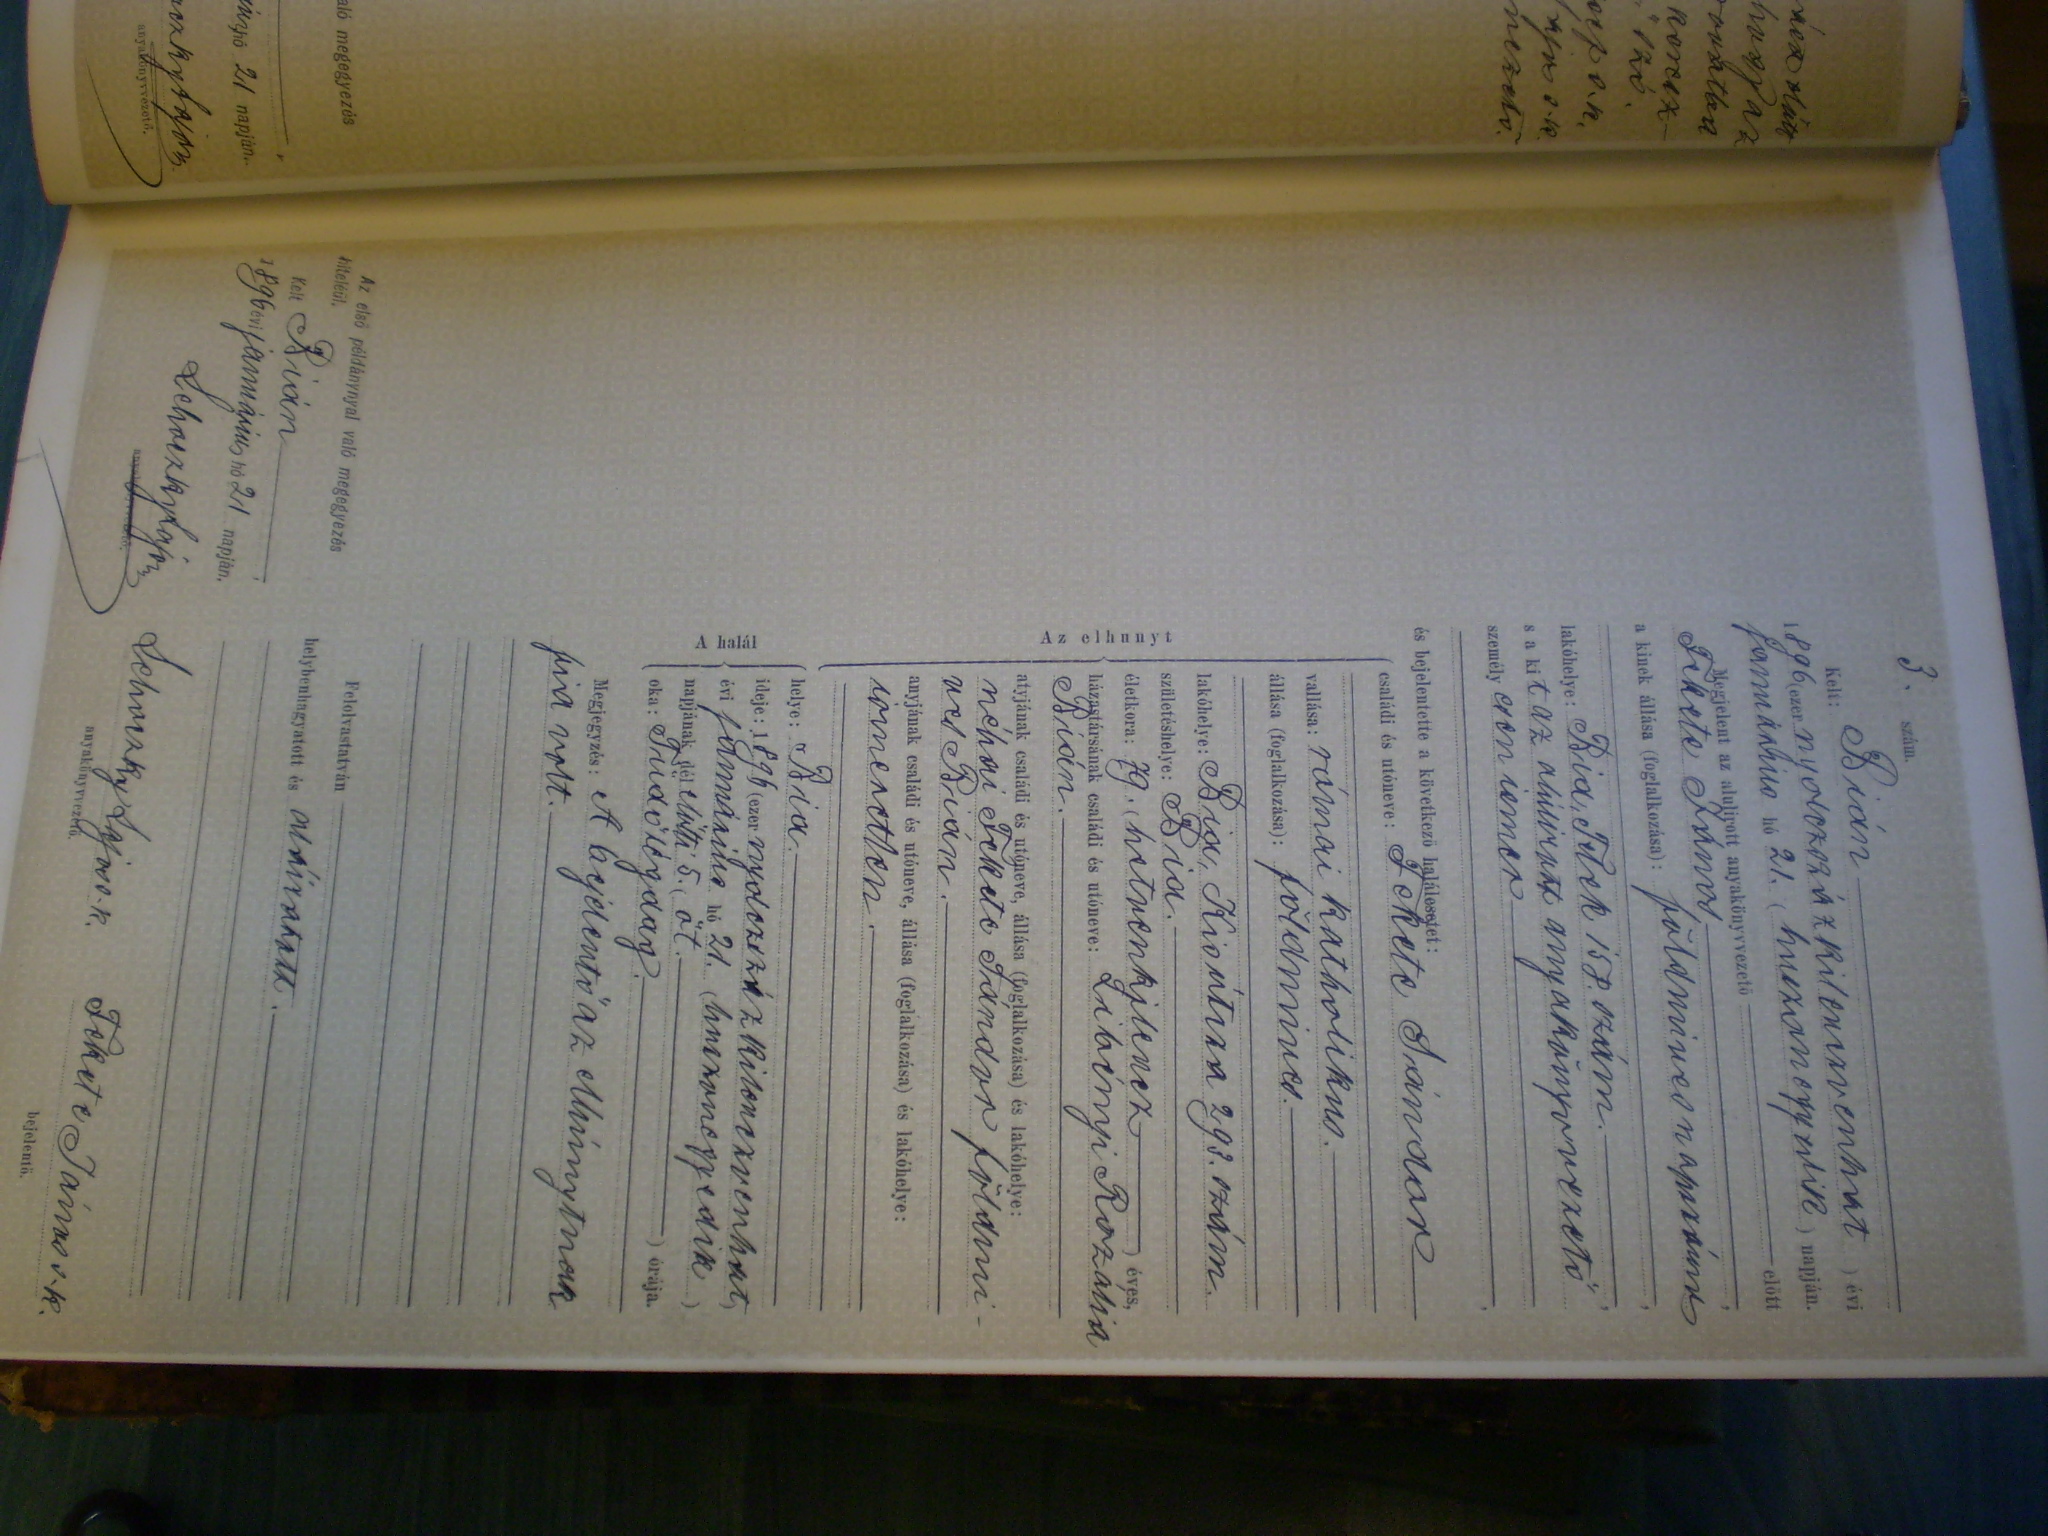 3. szám.
Kelt: Bián
1896 (ezernyolczszázkilenczvenhat) évi
januárius hó 21. (huszonegyedik) napján.
Megjelent az alulirott anyakönyvvezető előtt
Fekete János,
a kinek állása (foglalkozása): földmives napszámos
lakóhelye: Bia, Telek 157. szám.
s a kit az alulirott anyakönyvvezető,
személyesen ismer
és bejelentette a következő halálesetet:
családi és utóneve: Fekete Sándor
vallása: római katholikus.
állása (foglalkozása): földmives.
Az elhunyt
lakóhelye: Bia, Kisutcza 298. szám.
születéshelye: Bia.
életkora: 79. (hetvenkilencz) éves,
házastársának családi és utóneve: Libényi Rozália
Bián.
atyjának családi és utóneve, állása (foglalkozása) és lakóhelye:
néhai Fekete Sándor földmi-
ves Bián.
anyjának családi és utóneve, állása (foglalkozása) és lakóhelye:
ismeretlen.
A halál
helye: Bia.
ideje: 1896 (ezernyolczszázkilenczvenhat)
évi januárius hó 21. (huszonegyedik)
napjának dél előtti 5. (öt.) órája.
oka: Tüdőlégdag.
Megjegyzés: A bejelentő az elhúnytnak
fia volt.
Felolvastatván
helybenhagyatott és aláiratott.
Schuszky Lajos s. k.
anyakönyvvezető.
Fekete János s. k.
bejelentő.
Az első példánynyal való megegyezés
hiteléül.
Kelt Bián
1896 évi januárius hó 21 napján.
anyakönyvvezető.
aló megegyezés
21 napján.
anyakönyvvezető.